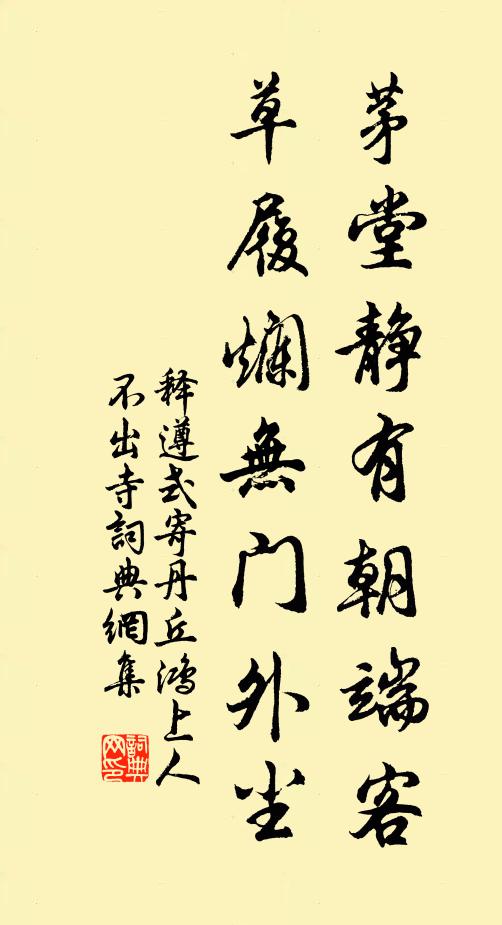 茅堂静有朝端客
草履爛無门外尘
释遵式寄丹丘鸿上人
不出寺詞典網集
詞典
网印